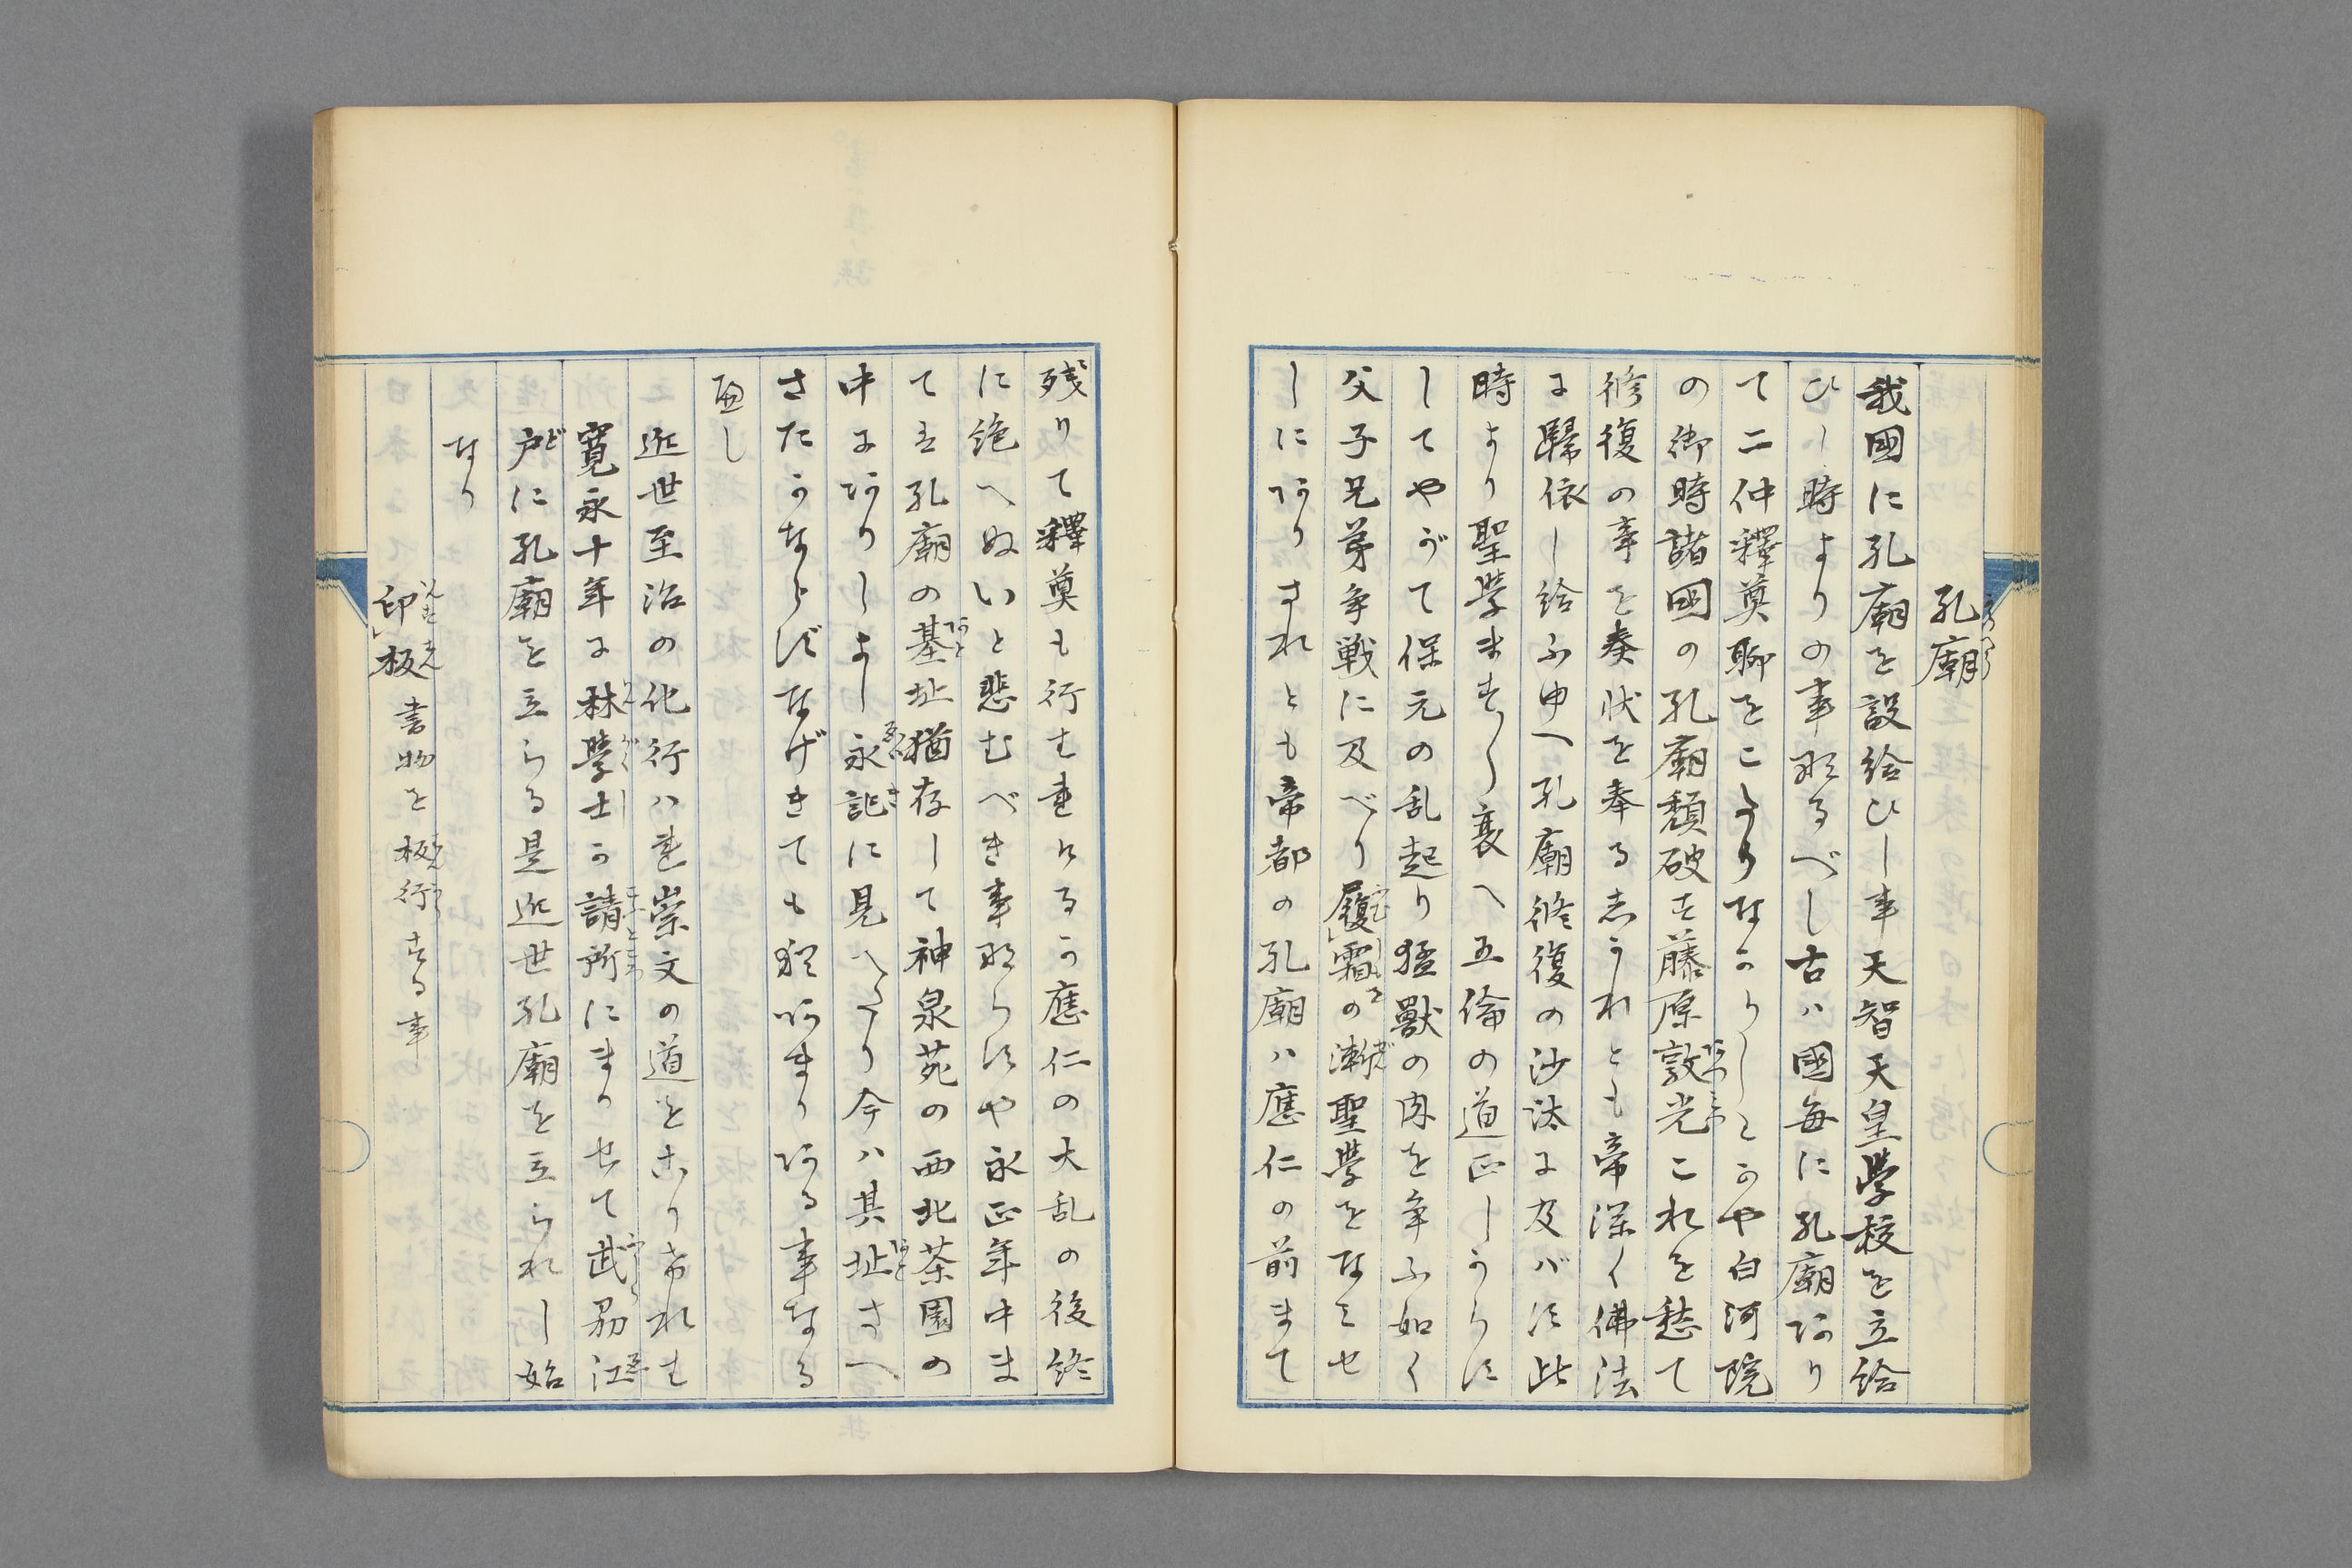 孔廟
我國に孔廟を設給ひし事天智天皇學校を立給
ひし時よりの事那るべし古ハ國毎に孔廟阿り
て二仲釋奠聊をこたりなかりしとかや白河院
の御時諸國の孔廟頽破す藤原敦光これを愁て
修復の事を奏状を奉る志かれとも帝深く佛法
に歸依し給ふ申へ孔廟修復の沙汰に及バす此
時より聖學ます〳〵衰へ五倫の道正しからす
してやがて保元の乱起り猛獸の肉を争ふ如く
父子兄弟争戦に及べり履霜の漸聖學をなミせ
しに阿りされとも帝都の孔廟ハ應仁の前まて
殘りて釋奠も行もれけるか應仁の大乱の後終
に絶へぬいと悲むべき事那らすや永正年中ま
て孔廟の基址猶存して神泉苑の西北茶園の
中に阿りしよし永記に見へたり今ハ其址さへ
さたかならずなげきても猶阿まり阿る事なる
遍し
近世至治の化行ハれ崇文の道をこり希れは
寛永十年に林學士か請所にまかせて武刕江
戸に孔廟を立らる是近世孔廟を立られし始
なり
印板 書物を板行する事